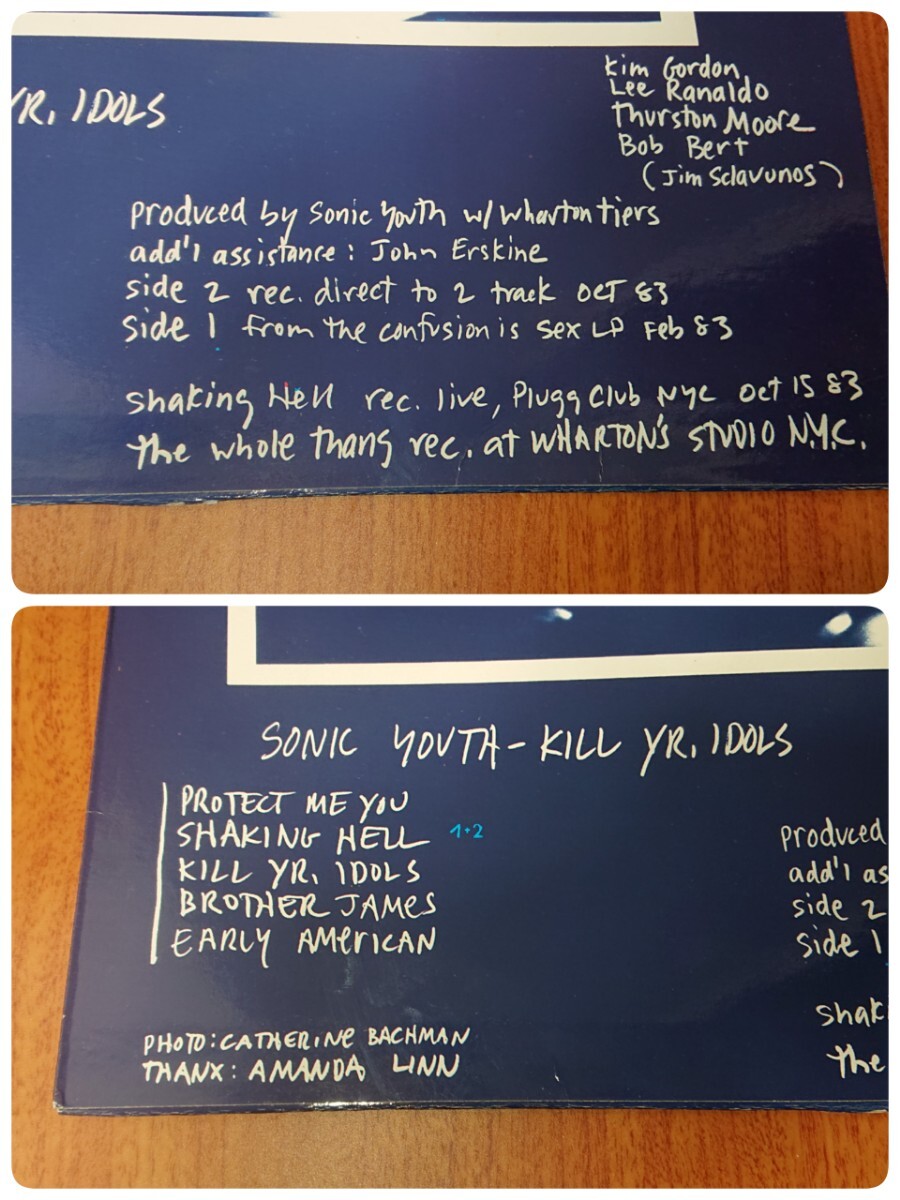 YR. IDOLS
Kim Gordon
Lee Ranaldo
Thurston Moore
Bob Bert
(Jim Sclavunos)
produced by Sonic Youth w/ wharton tiers
add'l assistance : John Erskine
side 2 rec. direct to 2 track OCT 83
side 1 from the confusion is sex LP Feb 83
shaking Hell rec. live, Plugg Club NYC Oct 15 83
the whole thang rec. at WHARTON'S STUDIO N.Y.C.
SONIC YOUTH - KILL YR. IDOLS
PROTECT ME YOU
SHAKING HELL 1+2
KILL YR. IDOLS
BROTHER JAMES
EARLY AMERICAN
PHOTO: CATHERINE BACHMAN
THANX: AMANDA LINN
produced
add'l as
side 2
side 1
shak
the